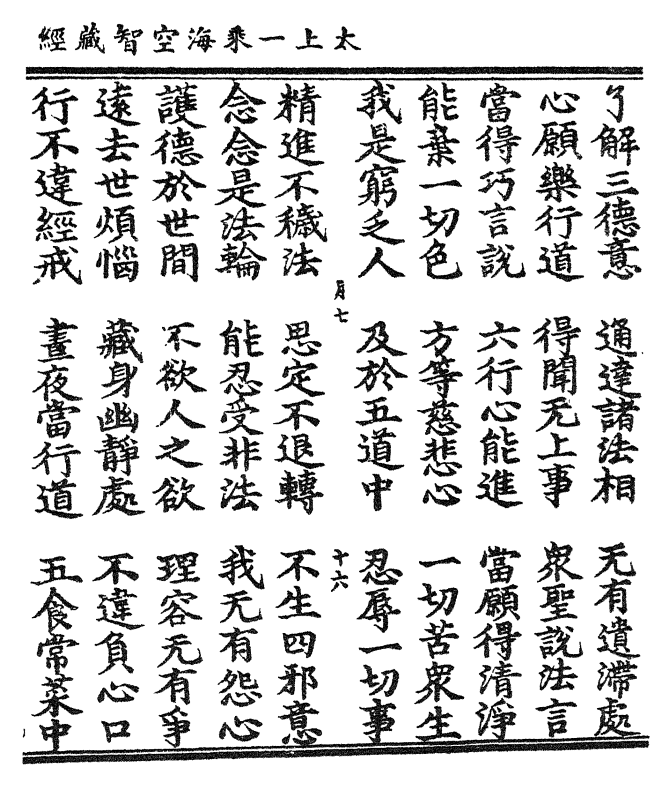 太上一乘海空智藏經
了解三德意　通達諸法相　无有遺滯處
心願樂行道　得聞无上事　衆聖說法言
當得巧言說　六行心能進　當願得清淨
能棄一切色　方等慈悲心　一切苦衆生
我是窮乏人　及於五道中　忍辱一切事
月七　十六
精進不穢法　思定不退轉　不生四邪意
念念是法輪　能忍受非法　我无有怨心
護德於世間　不欲人之欲　理容无有爭
遠去世煩惱　藏身幽靜處　不違負心口
行不違經戒　晝夜當行道　五食常菜中